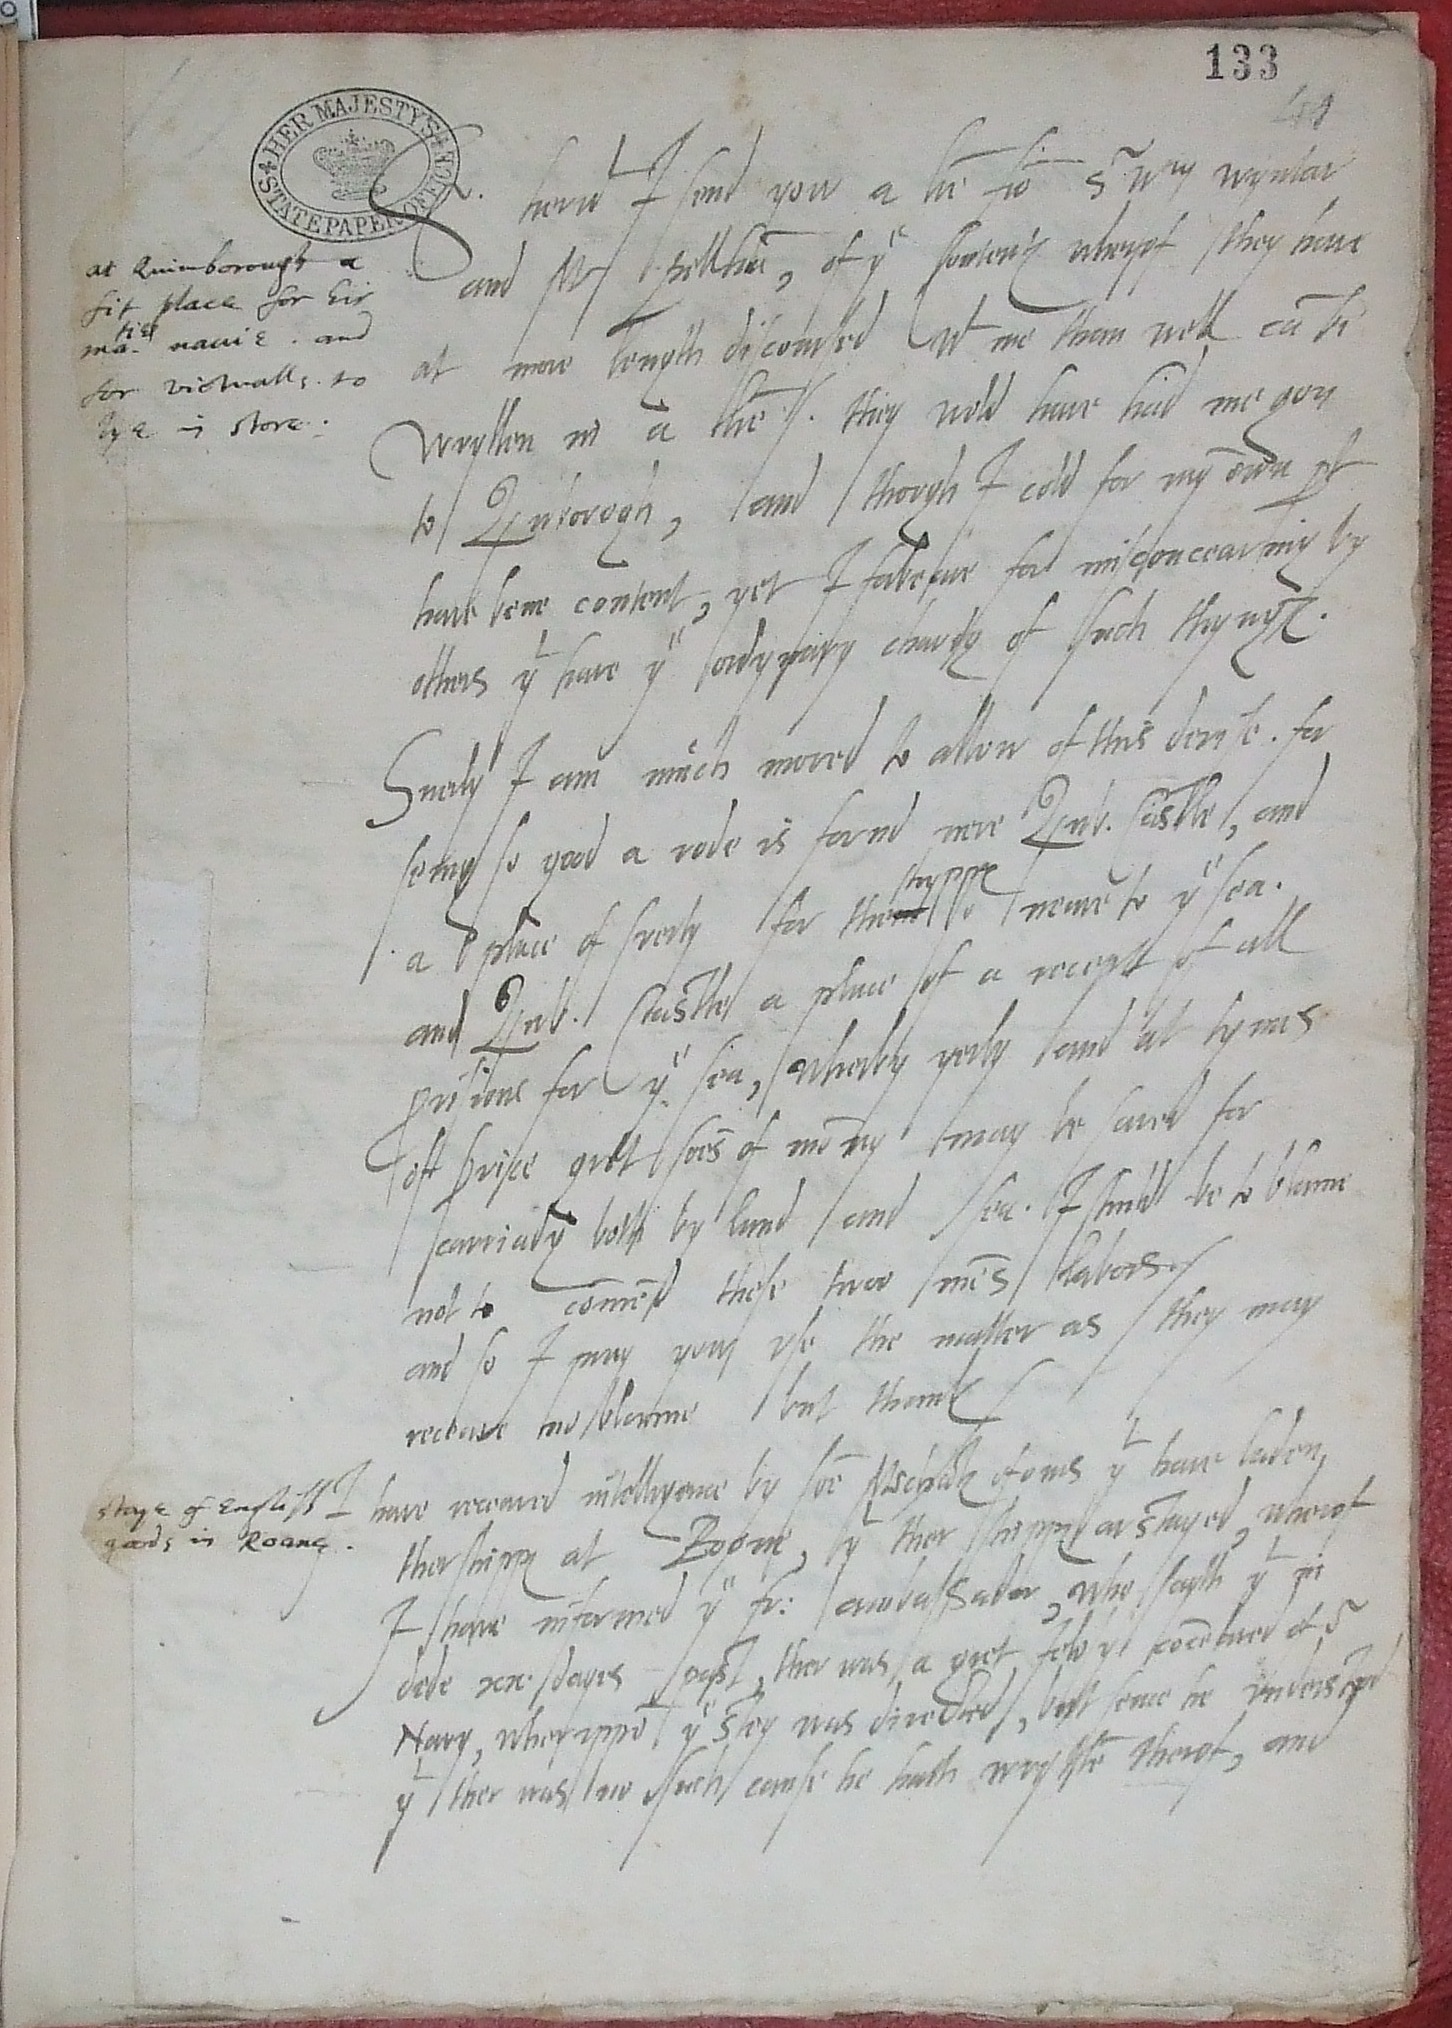 133
HER MAJESTY'S STATE PAPER OFFICE
at Quinborough a
fit place for hir
ma.ties navie . and
for victualls . to
lye in store .
S. herw I send yow a lre fro Sr Wm wyntar
and Mr pellham, of ye contents wherof they have
at more length discoursed wt me than well ca be
wrytten in a lre. they wold have had me gon
to Quinborogh, and though I cold for my own pt
have bene content, yet I forbeare for misconceaving by
others yt have ye ordynary chardg of such thyngs.
Suerly I am much moved to allow of this devise. for
seing so good a rode is fownd nere Quinb. Castle, and
a place of suerty for the shippes so neare to ye sea.
and Quinb. Castle a place of a receipt of all
provisions for ye sea, wherby yerly and at tymes
of servise gret soes of monny may be saved for
carriadg both by land and sea. I shuld be to blame
not to comend these two mens labors
and so I pray yow use the matter as they may
receave no blame but thanks
stage of English
goods in Roane .
I have receaved intelligence by soe Mschants of ours yt have laden
ther shipps at Roone, yt ther shipps ar stayed, wherof
I have informed ye fr: ambassador, who sayth yt in
dede xx dayes past, ther was a gret jelosy conceaved of or
Navy, wheruppo ye stey was directed, but sence he understod
yt ther was no such cause he hath wrytte therof, and